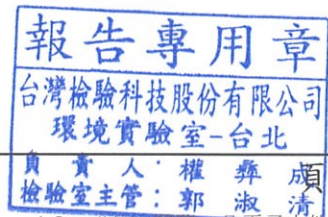 報告專用章
台灣檢驗科技股份有限公司
環境實驗室-台北
負責人：權彝成
檢驗室主管：郭淑清
頁